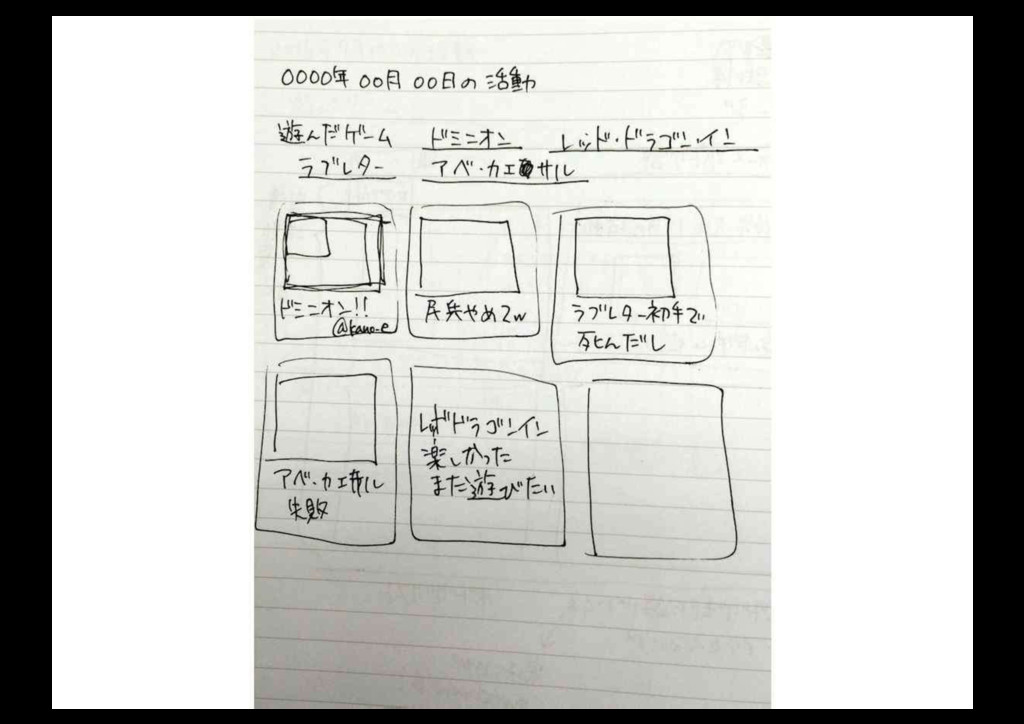 0000年 00月 00日の活動
遊んだゲーム ドミニオン レッド・ドラゴン・イン
ラブレター アベ・カエサル
ドミニオン!!
@kano-e
民兵やめてw
ラブレター初手で
死んだし
アベ・カエサル
失敗
レッドドラゴンイン
楽しかった
また遊びたい